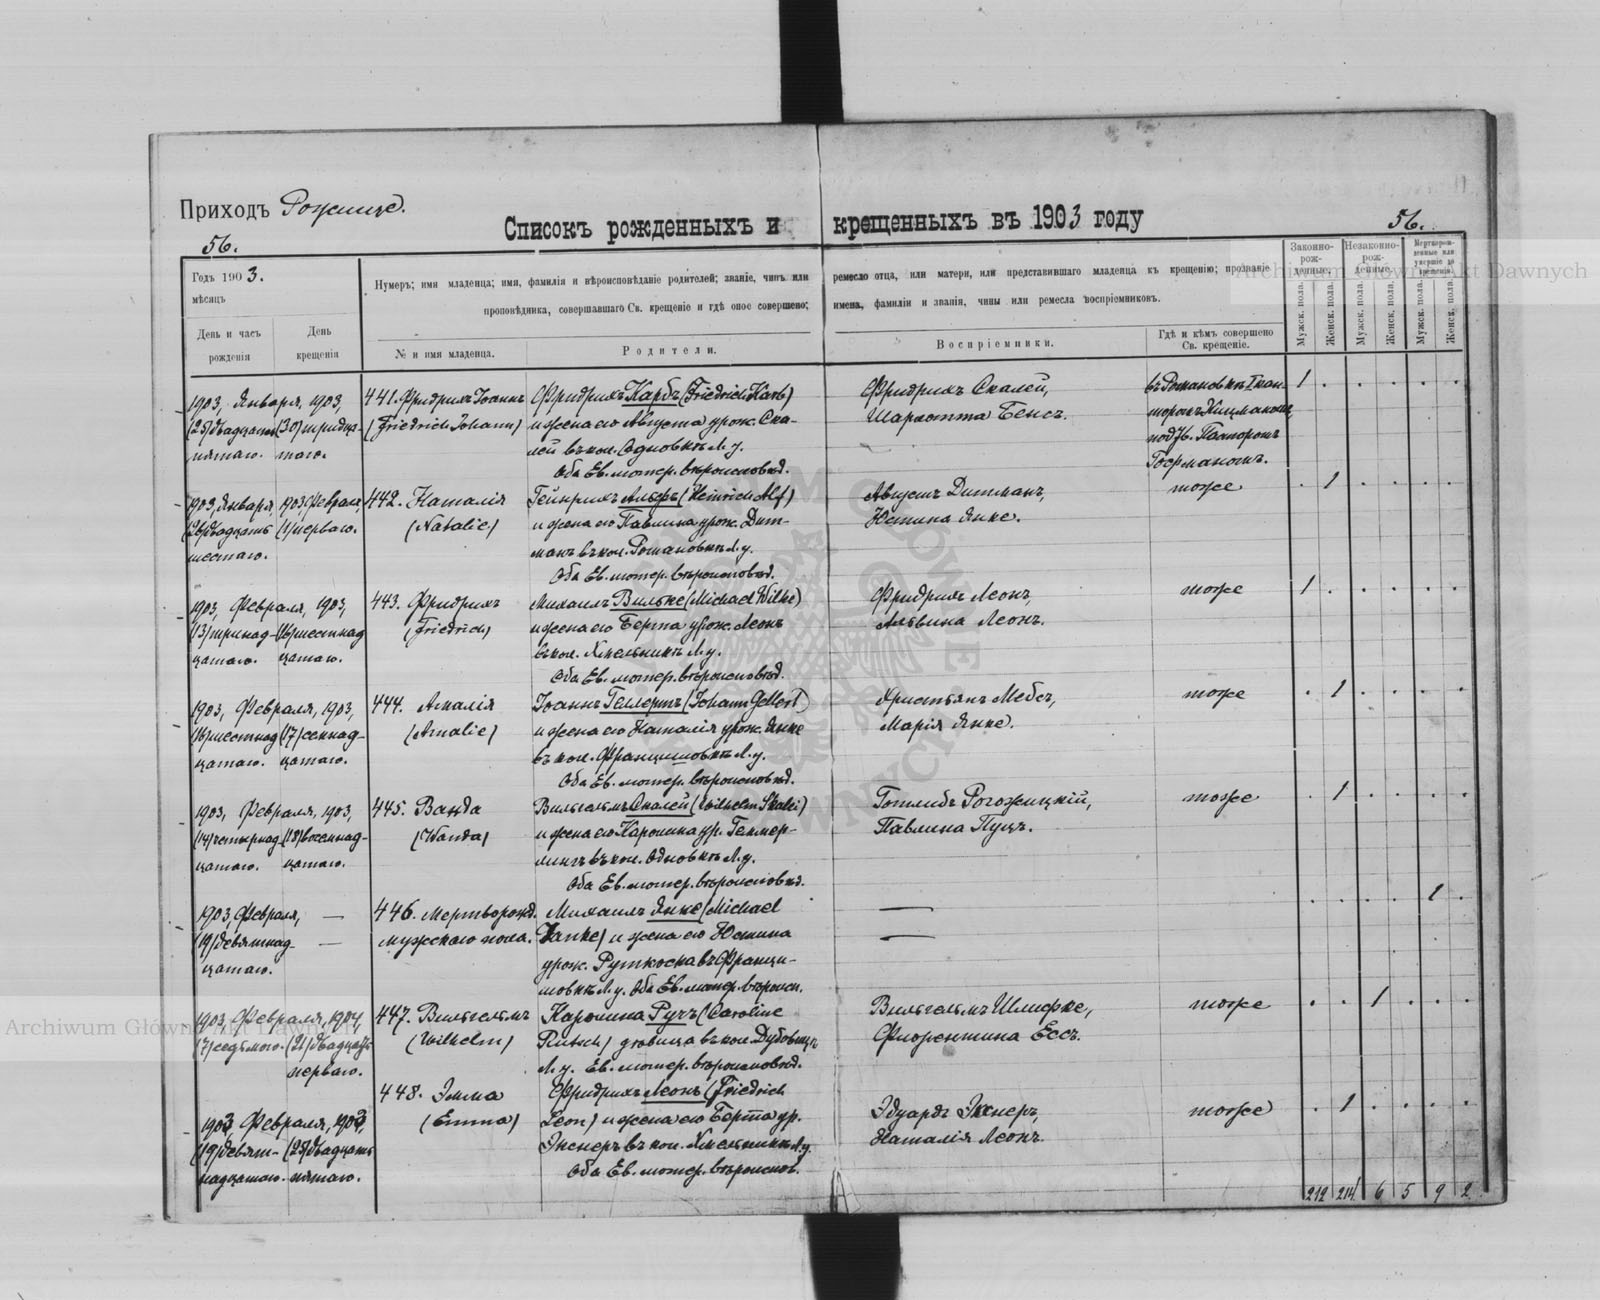 Приходъ Рожище.
Списокъ рожденныхъ и крещенныхъ въ 1903 году
56.
56.
Годъ 1903.
мѣсяцъ
День и часъ рожденія
День крещенія
Нумеръ; имя младенца; имя, фамилія и вѣроисповѣданіе родителей; званіе, чинъ или ремесло отца, или матери, или представившаго младенца къ крещенію; прозваніе
проповѣдника, совершавшаго Св. крещеніе и гдѣ оное совершено; имена, фамиліи и званія, чины или ремесла воспріемниковъ.
№ и имя младенца.
Родители.
Воспріемники.
Гдѣ и кѣмъ совершено
Св. крещеніе.
Законно-рож-денные.
Незаконно-рож-денные.
Мертворож-денные или умершіе до крещенія.
Мужск. пола.
Женск. пола.
Мужск. пола.
Женск. пола.
Мужск. пола.
Женск. пола.
1903, Января, 1903,
(25) двадцать (30) тридца-
пятаго. таго.
441. Фридрихъ Іоаннъ
(Friedrich Johann)
Фридрихъ Карбъ (Friedrich Karb)
и жена его Августа урож. Ска-
лей въ кол. Одновкѣ Л. у.
Оба Ев. лютер. вѣроисповѣд.
Фридрихъ Скалей,
Шарлотта Бенсъ.
въ Романовкѣ Кан-
торомъ
подтв. Пасторомъ
Германомъ.
1
1903, Января, 1903, Февраля,
(26) двадцать (1) перваго.
шестаго.
442. Наталія
(Natalie)
Гейнрихъ Альфъ (Heinrich Alf)
и жена его Павлина урож. Дит-
манъ въ кол. Романовкѣ Л. у.
Оба Ев. лютер. вѣроисповѣд.
Августъ Дитманъ,
Юстина Янке.
тоже
1
1903, Февраля, 1903,
(13) тринад- (16) шестнад
цатаго. цатаго.
443. Фридрихъ
(Friedrich)
Михаилъ Вильке (Michael Wilke)
и жена его Берта урож. Леонъ
въ кол. Хмельникѣ Л. у.
Оба Ев. лютер. вѣроисповѣд.
Фридрихъ Леонъ,
Альвина Леонъ.
тоже
1
1903, Февраля, 1903,
(16) шестнад (17) семнад-
цатаго. цатаго.
444. Амалія
(Amalie)
Іоаннъ Геллертъ (Johann Gellert)
и жена его Наталія урож. Янке
въ кол. Францишовкѣ Л. у.
Оба Ев. лютер. вѣроисповѣд.
Христьянъ Мебсъ,
Марія Янке.
тоже
1
1903, Февраля, 1903,
(14) четырнад- (18) восемнад-
цатаго. цатаго.
445. Ванда
(Wanda)
Вильгельмъ Скалей (Wilhelm Skalei)
и жена его Каролина ур. Геммер-
лингъ въ кол. Одновкѣ Л. у.
Оба Ев. лютер. вѣроисповѣд.
Готлибъ Рогожицкій,
Павлина Пуцъ.
тоже
1
1903, Февраля, —
(19) девятнад- —
цатаго.
446. Мертворожд.
мужскаго пола.
Михаилъ Янке (Michael
Janke) и жена его Юстина
урож. Рутковска въ Францы-
шовкѣ Л. у. Оба Ев. лютер. вѣроисп.
1
1903, Февраля, 1904,
(7) седьмого. (21) двадцать
перваго.
447. Вильгельмъ
(Wilhelm)
Каролина Ручъ (Caroline
Rutsch) дѣвица въ кол. Дубовицѣ
Л. у. Ев. лютер. вѣроисповѣд.
Вильгельмъ Шлифке,
Флорентина Ессъ.
тоже
1
1903, Февраля, 1903,
(19) девят- (25) двадцать
надцатаго. пятаго.
448. Эмма
(Emma)
Фридрихъ Леонъ (Friedrich
Leon) и жена его Берта ур.
Экснеръ въ кол. Хмельникѣ Л. у.
Оба Ев. лютер. вѣроиспов.
Эдуардъ Экснеръ,
Наталія Леонъ.
тоже
1
212 214 6 5 9 2
Archiwum Główne Akt Dawnych
Archiwum Główne Akt Dawnych